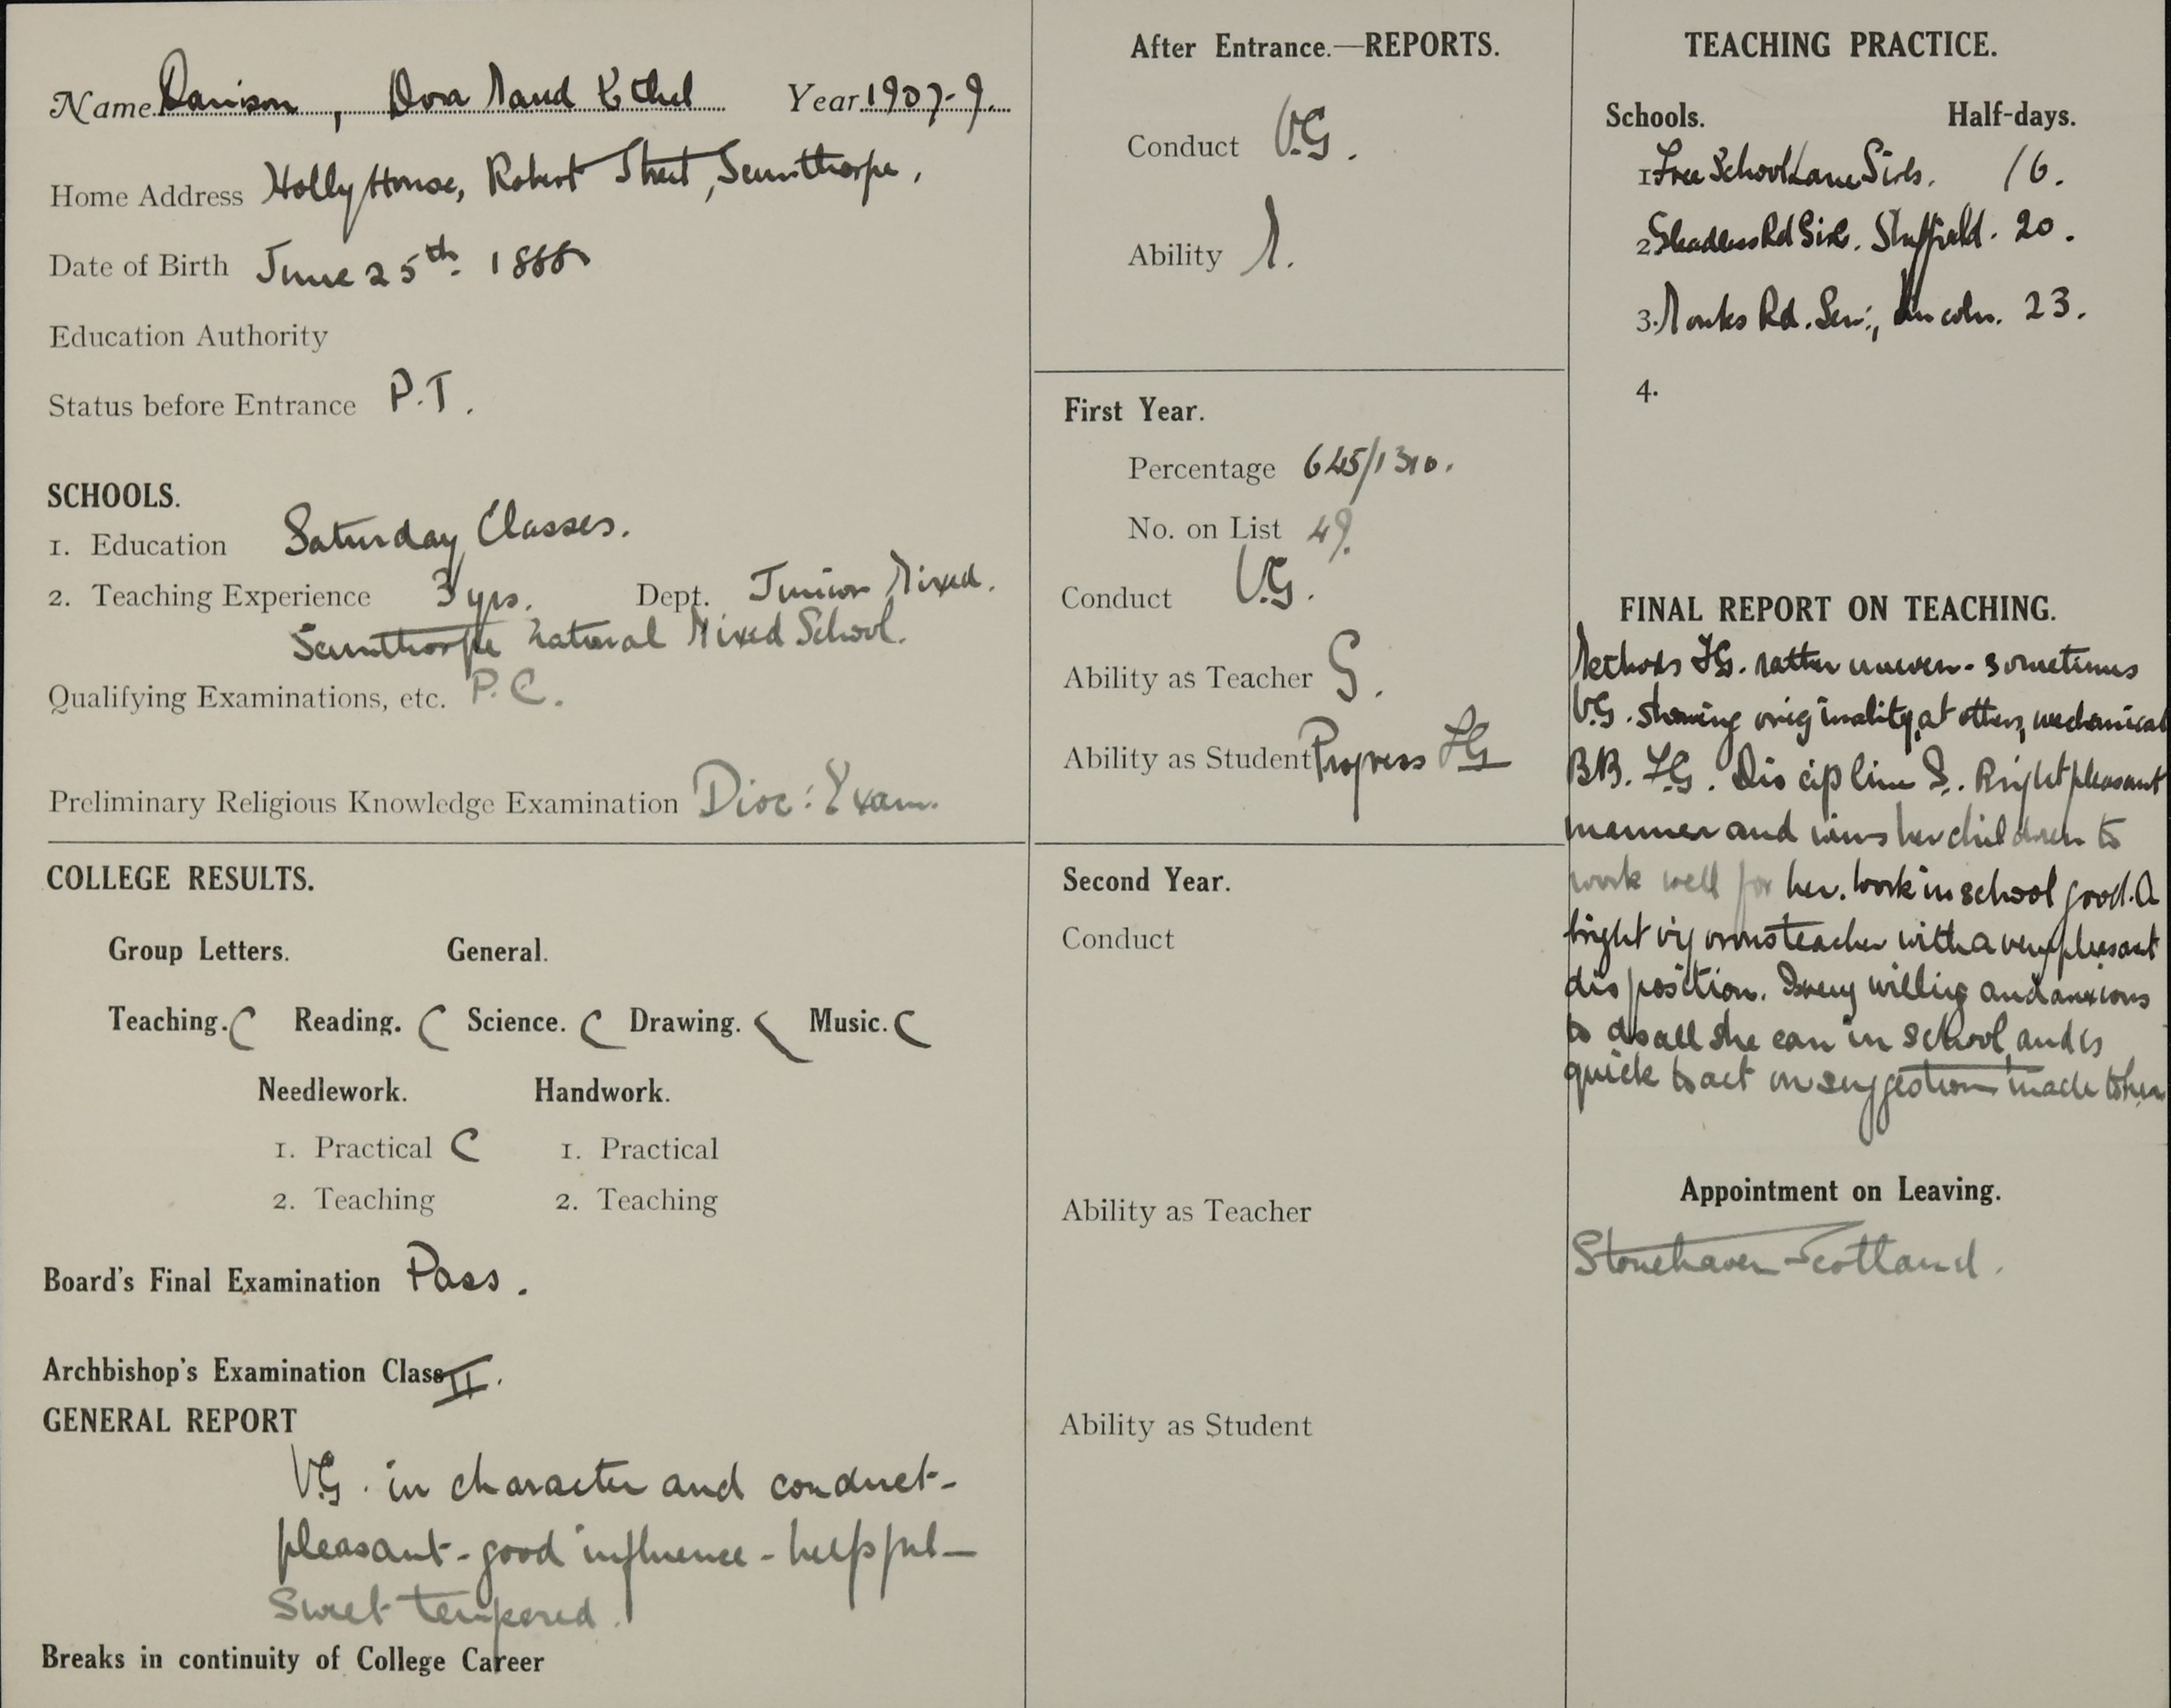 Name Davison, Dora Maud Ethel Year 1907-9.
Home Address Holly House, Robert Street, Scunthorpe,
Date of Birth June 25th. 1888
Education Authority
Status before Entrance P.T.
SCHOOLS.
1. Education Saturday Classes.
2. Teaching Experience 3 yrs. Dept. Junior Mixed.
Scunthorpe National Mixed School.
Qualifying Examinations, etc. P.C.
Preliminary Religious Knowledge Examination Dioc: Exam.
COLLEGE RESULTS.
Group Letters. General.
Teaching. C Reading. C Science. C Drawing. C Music. C
Needlework. Handwork.
1. Practical C 1. Practical
2. Teaching 2. Teaching
Board's Final Examination Pass.
Archbishop's Examination Class II.
GENERAL REPORT
V.G. in character and conduct-
pleasant - good influence - helpful -
Sweet tempered.
Breaks in continuity of College Career
After Entrance.—REPORTS.
Conduct V.G.
Ability M.
First Year.
Percentage 645/1310.
No. on List 49.
Conduct V.G.
Ability as Teacher G.
Ability as Student Progress FG
Second Year.
Conduct
Ability as Teacher
Ability as Student
TEACHING PRACTICE.
Schools. Half-days.
1. Free School Lane Girls. 16.
2. Gleadless Rd Girls. Sheffield. 20.
3. Monks Rd. Sen:, Lincoln. 23.
4.
FINAL REPORT ON TEACHING.
Methods FG. rather uneven - sometimes
V.G. showing originality, at others, mechanical
BB. F.G. Discipline G. Bright pleasant
manner and wins her children to
work well for her. Work in school good. A
bright vigorous teacher with a very pleasant
disposition. Is very willing and anxious
to do all she can in school, and is
quick to act on suggestion made to her
Appointment on Leaving.
Stonehaven - Scotland.